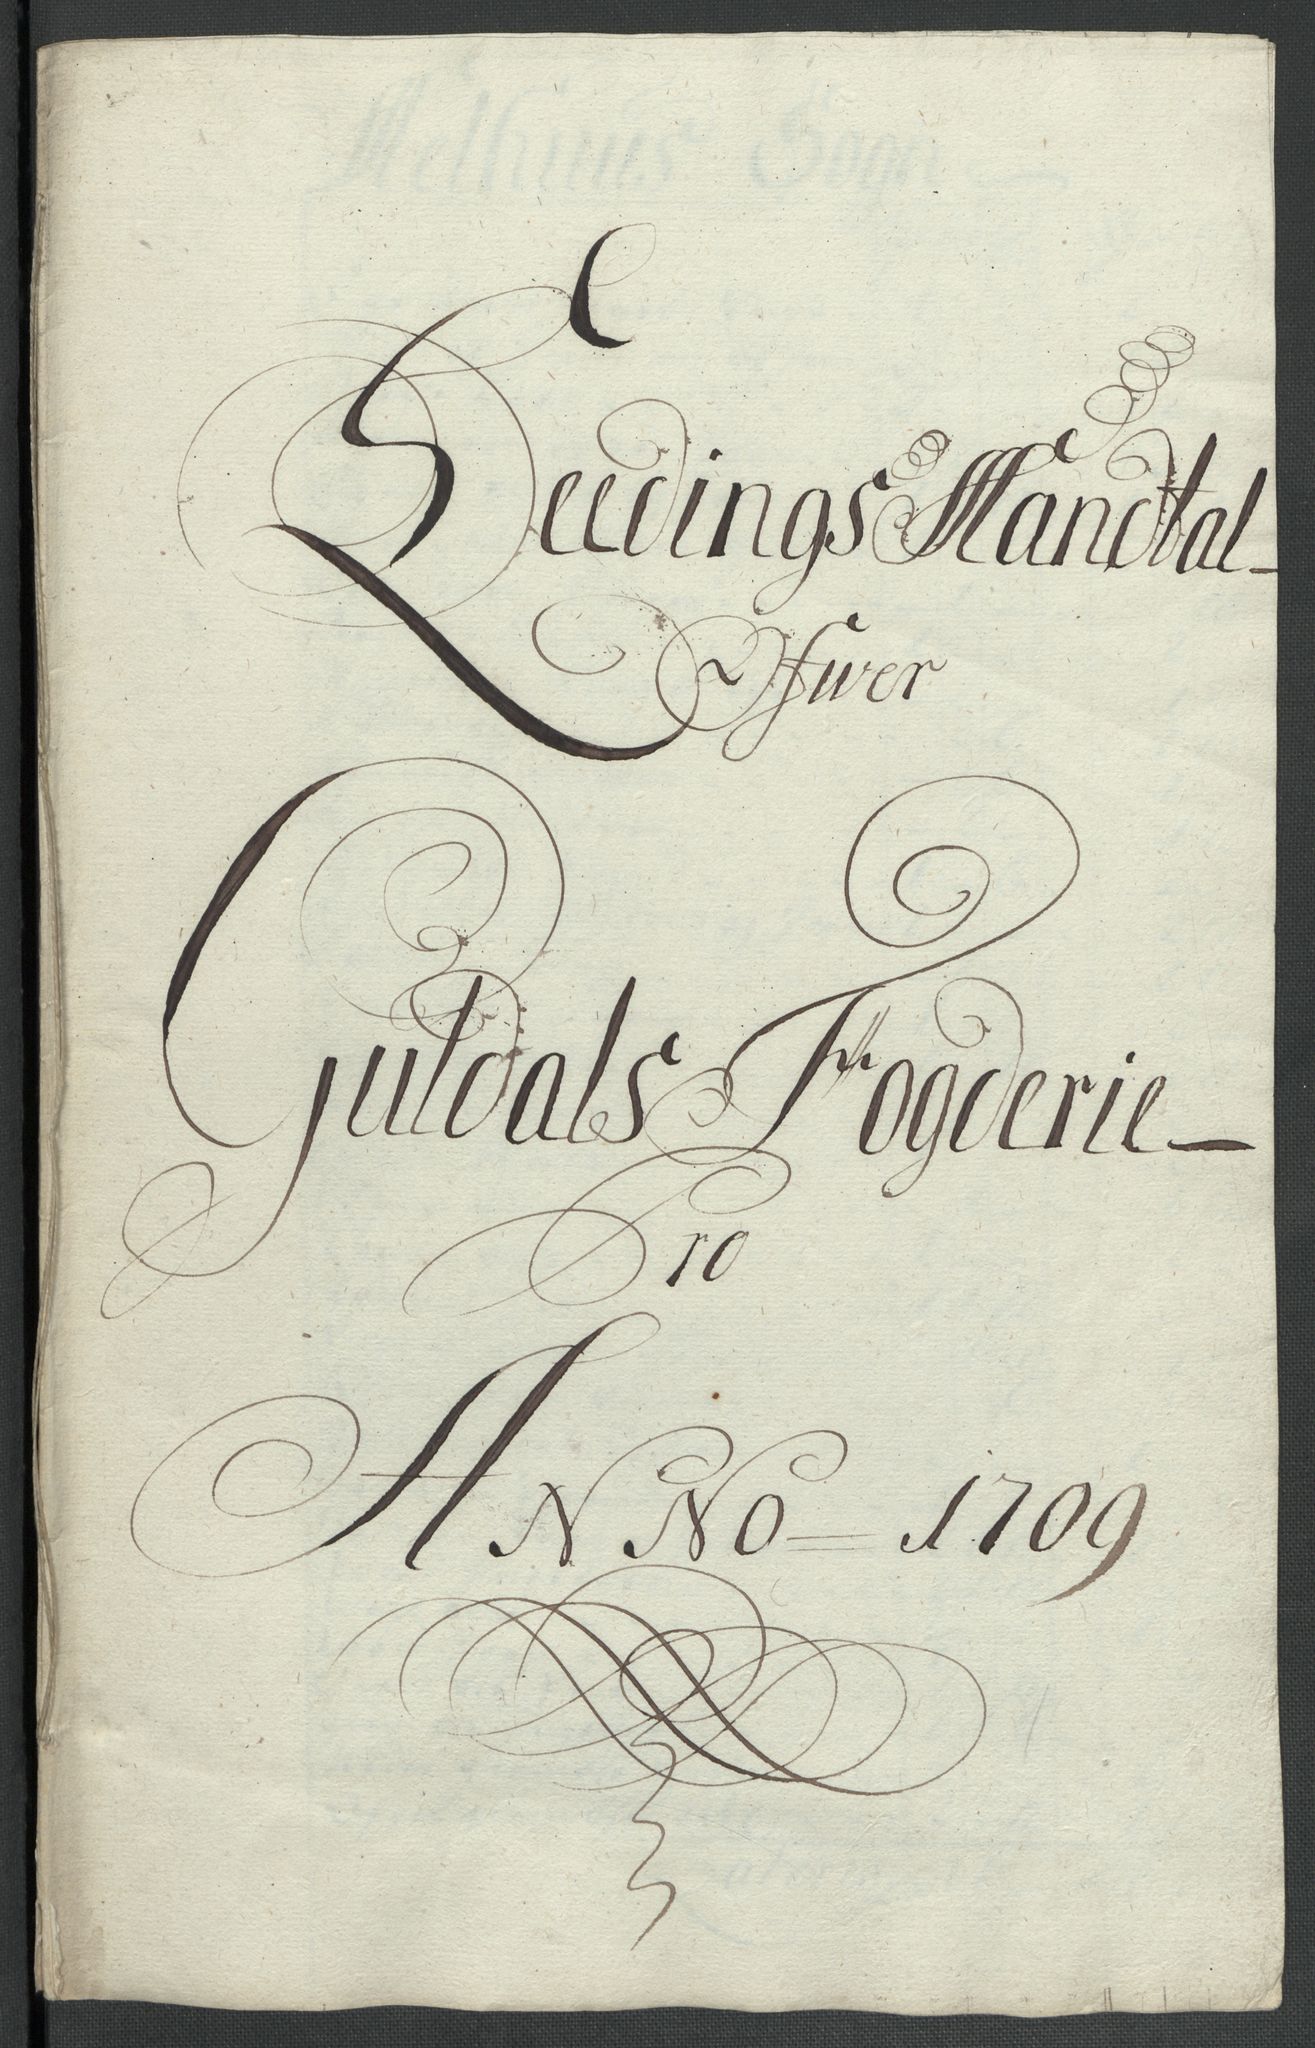 Leedings Mandtal
Ofwer
Guldals Fogderie
Pro
ANNo 1709